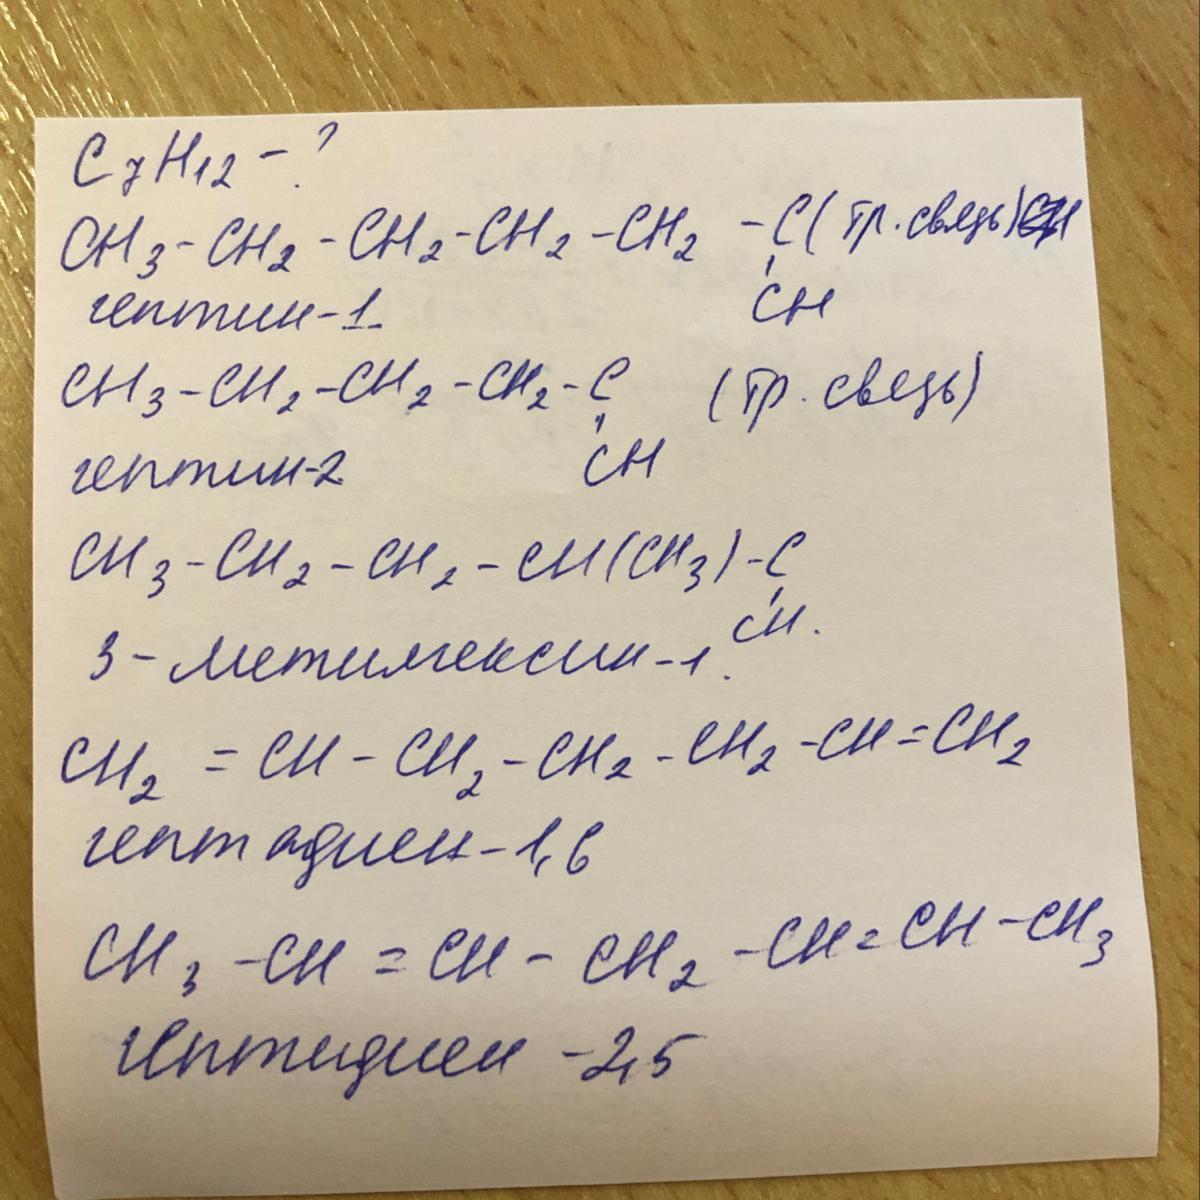 C7H12 - ?
CH3-CH2-CH2-CH2-CH2-C(тр.связь)CH
CH
гептин-1
CH3-CH2-CH2-CH2-C (тр. связь)
CH
гептин-2
CH3-CH2-CH2-CH(CH3)-C
CH.
3-метилгексин-1.
CH2=CH-CH2-CH2-CH2-CH=CH2
гептадиен-1,6
CH3-CH=CH-CH2-CH=CH-CH3
гептадиен-2,5